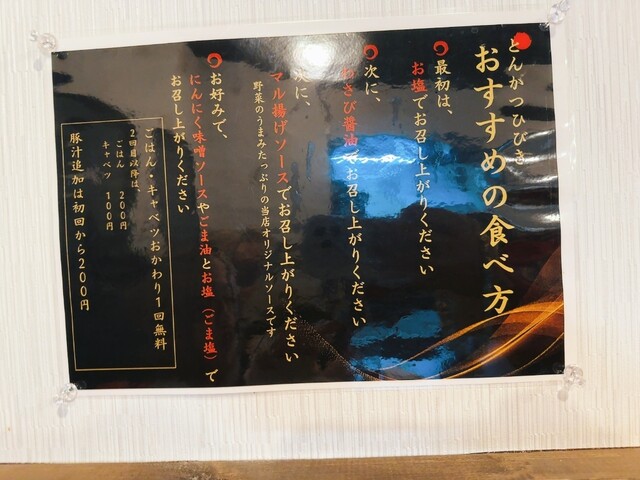 とんかつひびき
おすすめの食べ方
最初は、
お塩でお召し上がりください
次に、
わさび醤油でお召し上がりください
次に、
マル揚げソースでお召し上がりください
野菜のうまみたっぷりの当店オリジナルソースです
お好みで、
にんにく味噌ソースやごま油とお塩（ごま塩）で
お召し上がりください
ごはん・キャベツおかわり1回無料
2回目以降は、
ごはん 200円
キャベツ 100円
豚汁追加は初回から200円